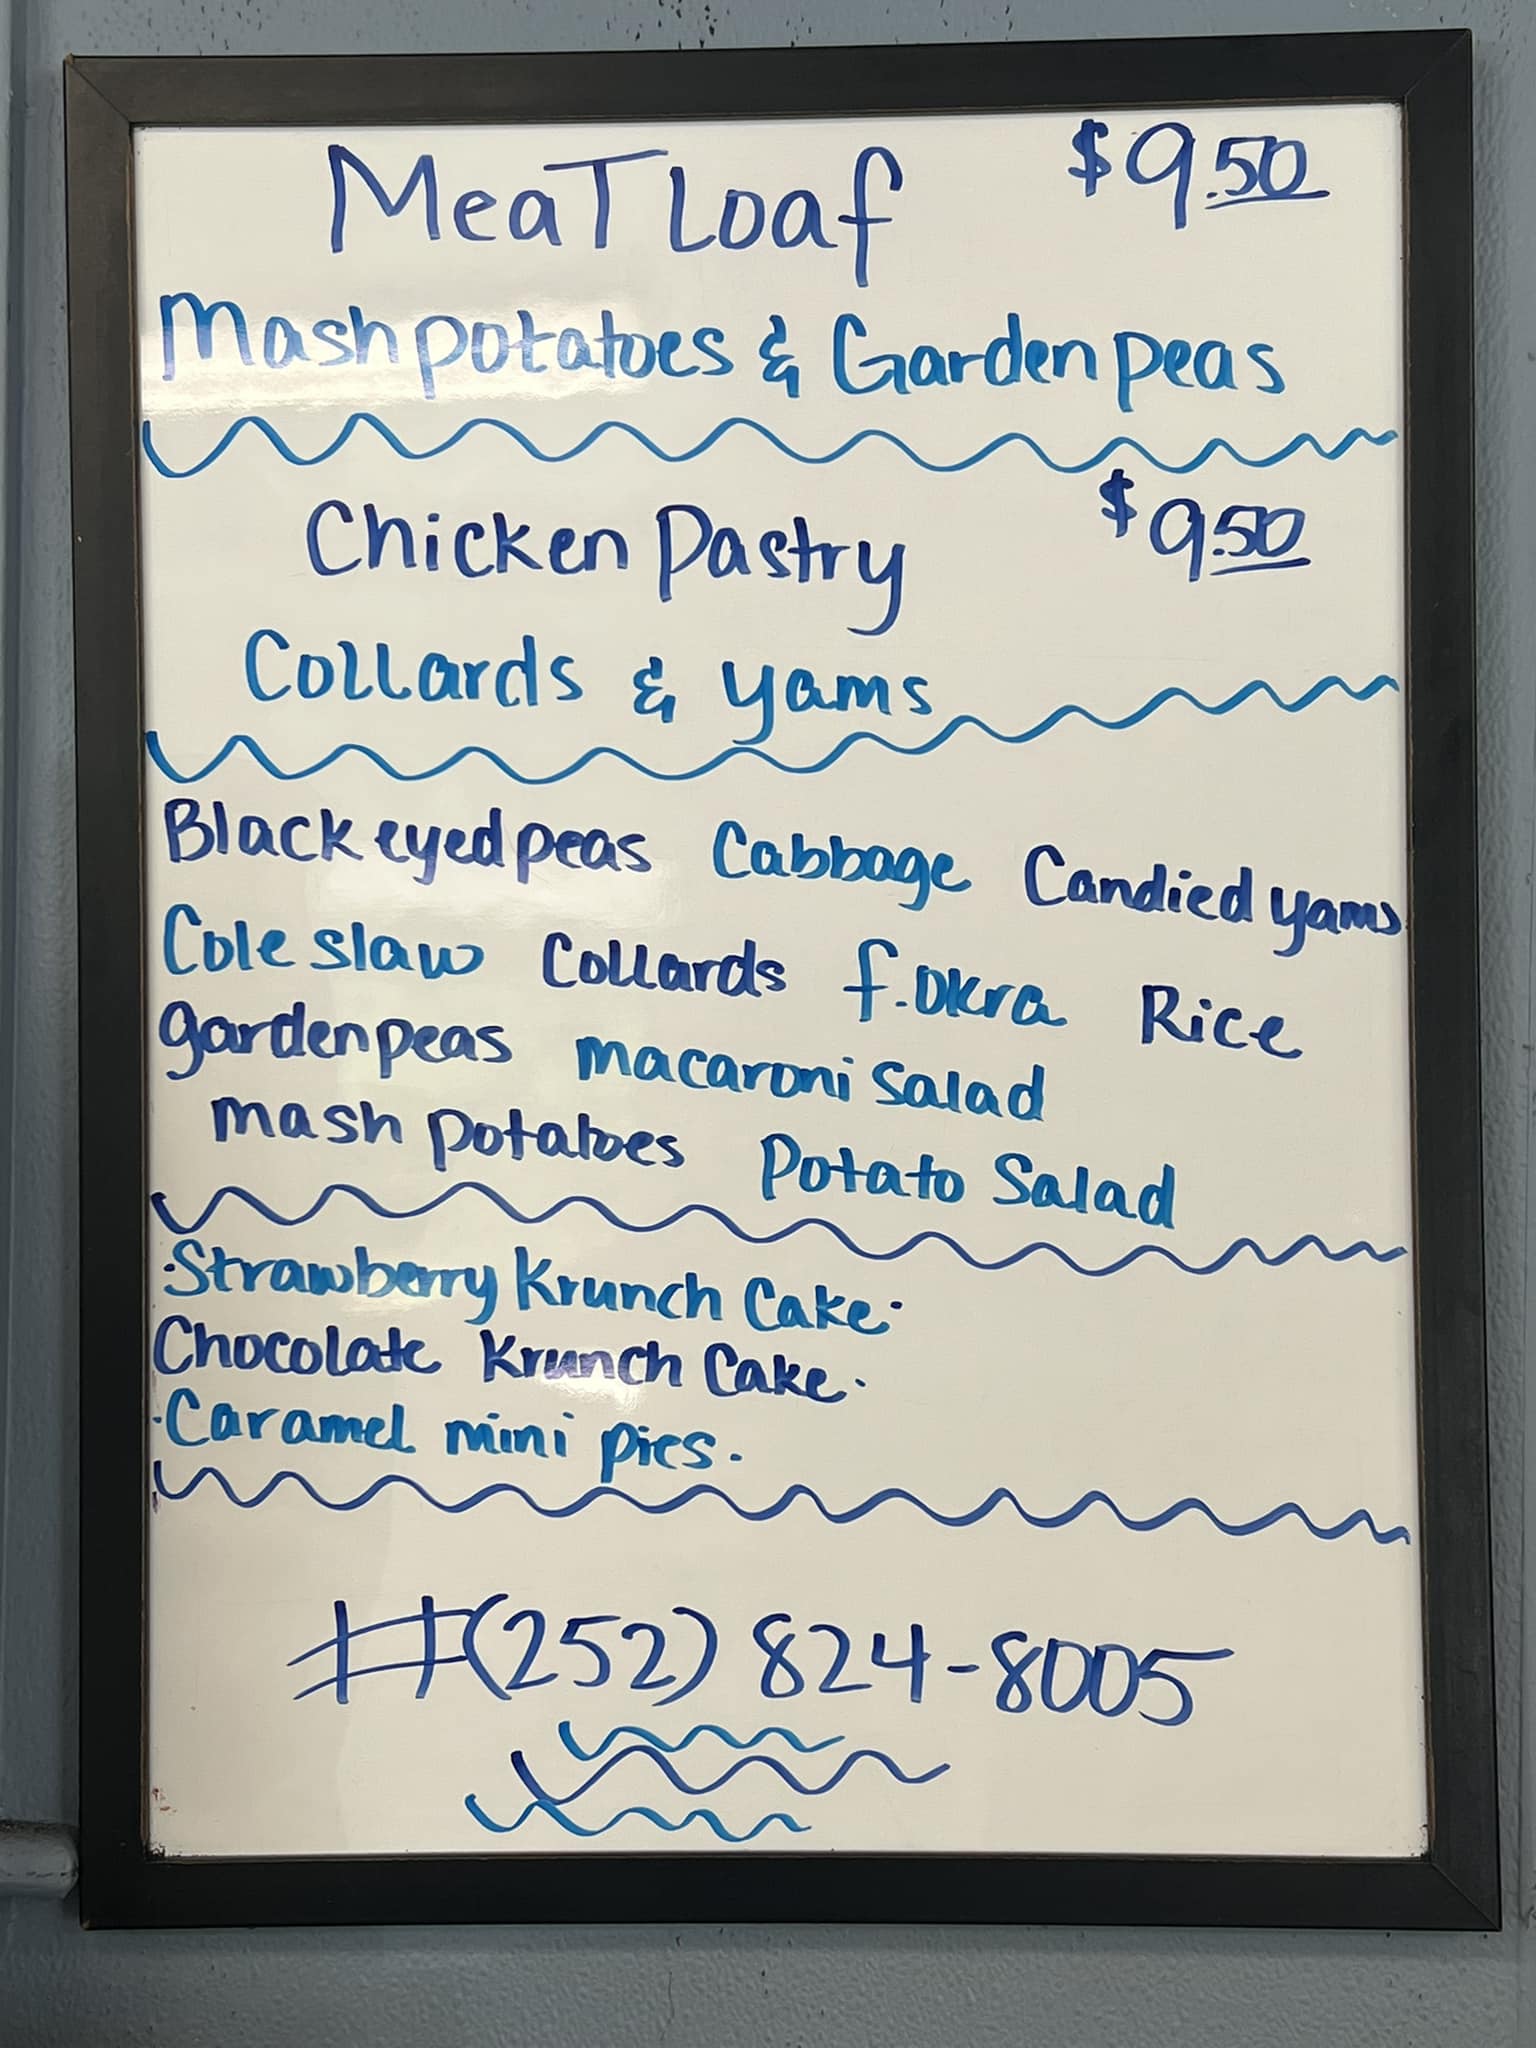 MeaT Loaf $9.50
Mash potatoes & Garden peas
Chicken Pastry $9.50
Collards & yams
Black eyed peas Cabbage Candied yams
Cole slaw Collards f. okra Rice
garden peas macaroni Salad
mash potatoes Potato Salad
·Strawberry Krunch Cake·
Chocolate Krunch Cake·
·Caramel mini pies·
#(252) 824-8005